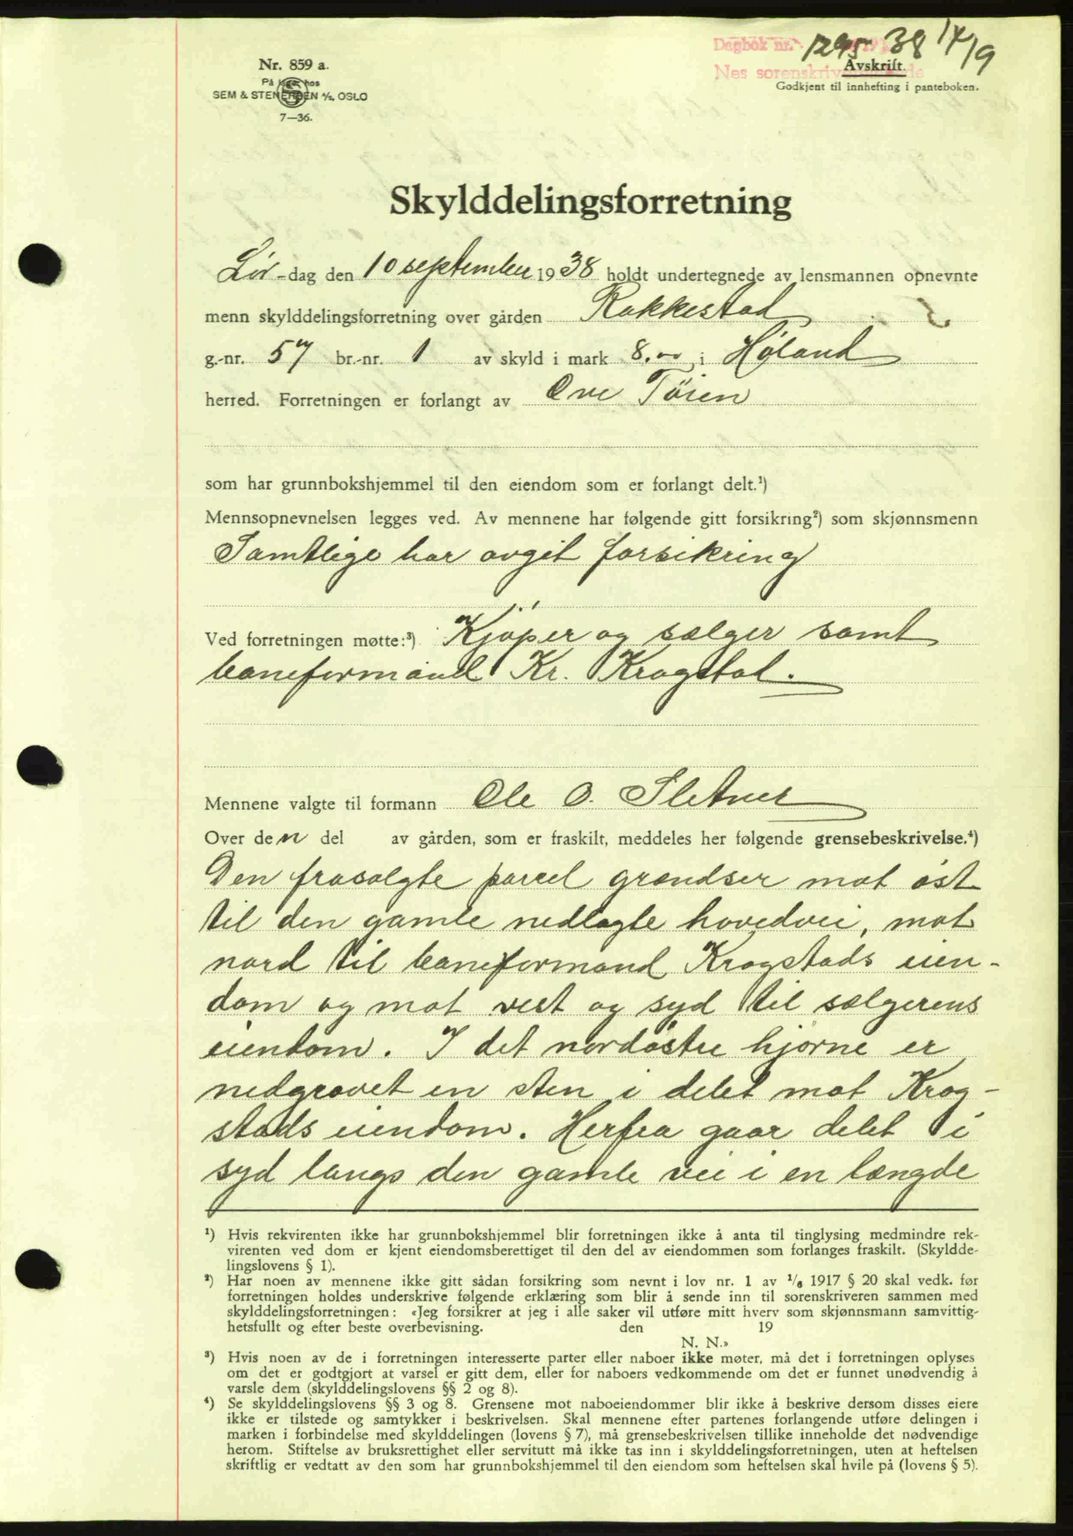 Dagbok nr. 1295 38 14/9
Nes sorenskriverembede
Avskrift.
Godkjent til innhefting i panteboken.
Nr. 859 a.
På lager hos
SEM & STENERSEN A/S, OSLO
7—36.
Skylddelingsforretning
Lør-dag den 10 september 1938 holdt undertegnede av lensmannen opnevnte
menn skylddelingsforretning over gården Rakkestad
g.-nr. 57 br.-nr. 1 av skyld i mark 8,00 i Høland
herred. Forretningen er forlangt av Ove Tøien
som har grunnbokshjemmel til den eiendom som er forlangt delt.¹)
Mennsopnevnelsen legges ved. Av mennene har følgende gitt forsikring²) som skjønnsmenn
Samtlige har avgit forsikring
Ved forretningen møtte:³) Kjøper og sælger samt
baneformand Kr. Krogstad.
Mennene valgte til formann Ole O. Sletner
Over den del av gården, som er fraskilt, meddeles her følgende grensebeskrivelse.⁴)
Den frasolgte parcel grændser mot øst
til den gamle nedlagte hovedvei, mot
nord til baneformand Krogstads eien-
dom og mot vest og syd til sælgerens
eiendom. I det nordøstre hjørne er
nedgravet en sten i delet mot Krog-
stads eiendom. Herfra gaar delet i
syd langs den gamle vei i en længde
¹) Hvis rekvirenten ikke har grunnbokshjemmel blir forretningen ikke å anta til tinglysing medmindre rek-
virenten ved dom er kjent eiendomsberettiget til den del av eiendommen som forlanges fraskilt. (Skyldde-
lingslovens § 1).
²) Har noen av mennene ikke gitt sådan forsikring som nevnt i lov nr. 1 av 1/6 1917 § 20 skal vedk. før
forretningen holdes underskrive følgende erklæring som blir å sende inn til sorenskriveren sammen med
skylddelingsforretningen: «Jeg forsikrer at jeg i alle saker vil utføre mitt hverv som skjønnsmann samvittig-
hetsfullt og efter beste overbevisning. den 19
N. N.»
³) Hvis noen av de i forretningen interesserte parter eller naboer ikke møter, må det i forretningen oplyses
om det er godtgjort at varsel er gitt dem, eller for naboers vedkommende om det er funnet unødvendig å
varsle dem (skylddelingslovens §§ 2 og 8).
⁴) Se skylddelingslovens §§ 3 og 8. Grensene mot naboeiendommer blir ikke å beskrive dersom disses eiere
ikke er tilstede og samtykker i beskrivelsen. Skal mennene efter partenes forlangende utføre delingen i
marken i forbindelse med skylddelingen (lovens § 7), må grensebeskrivelsen tillike inneholde det nødvendige
herom. Stiftelse av bruksrettighet eller servitutt må ikke tas inn i skylddelingsforretningen, uten at heftelsen
skriftlig er vedtatt av den som har grunnbokshjemmel til den eiendom som heftelsen skal hvile på (lovens § 5).